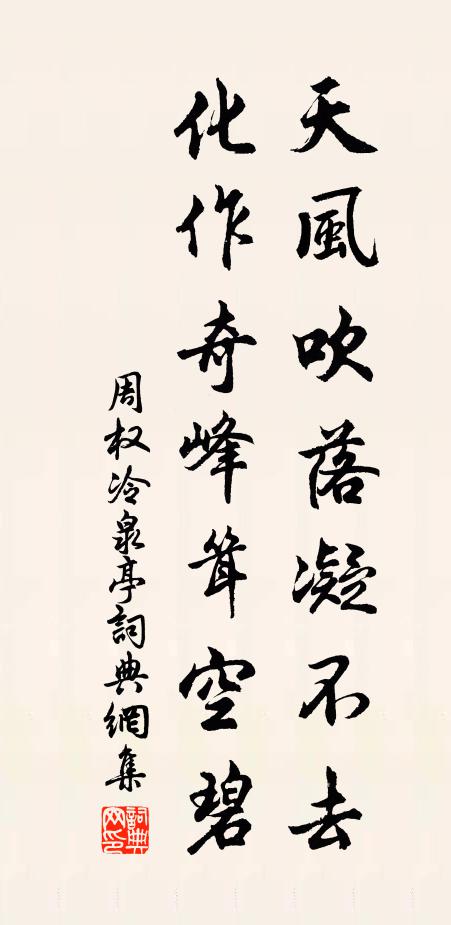 天風吹落凝不去
化作奇峰聳空碧
周权冷泉亭詞典網集
詞典網印